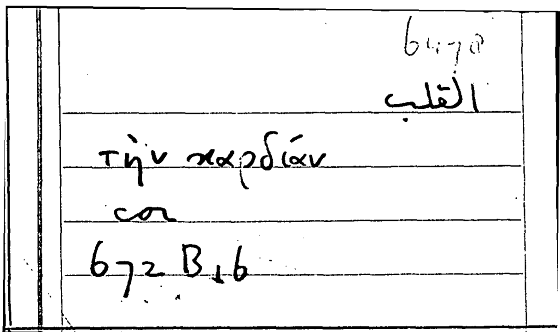 القلب
τὴν καρδίαν
cor
672 B 6